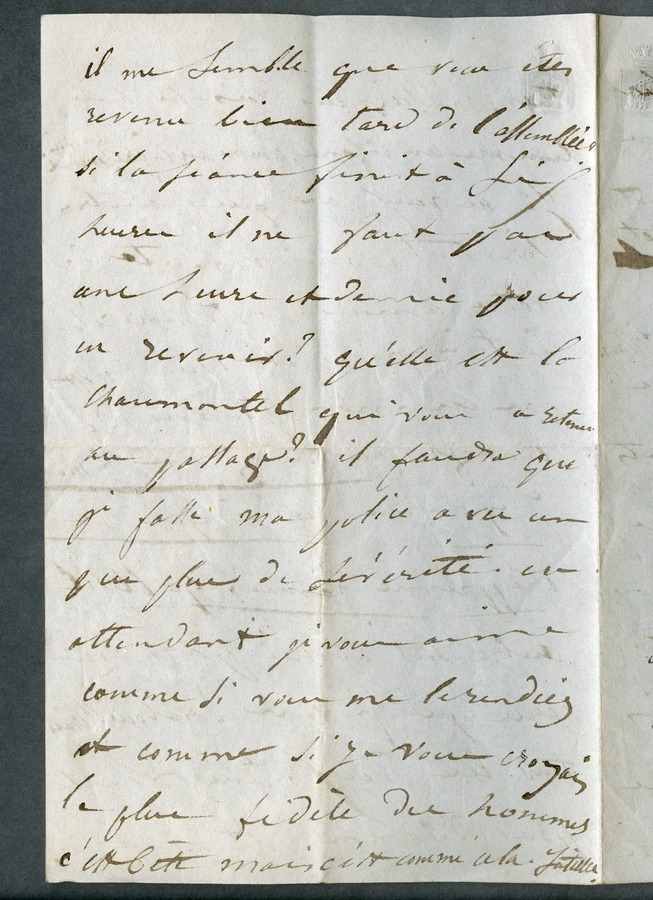 il me semble que vous êtes
revenu bien tard de l'assemblée.
si la séance finit à six
heures il ne faut pas
une heure et demie pour
en revenir? qu'elle est la
chaumontel qui vous a retenu
au passage? il faudra que
je fasse ma police avec un
peu plus de sévérité. en
attendant je vous aime
comme si vous me le rendiez
et comme si je vous croyais
le plus fidèle des hommes
c'est bête mais c'est comme cela.